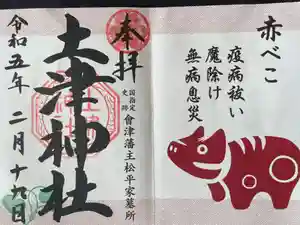 赤べこ
疫病祓い
魔除け
無病息災
奉拝
国指定
史跡
會津藩主松平家墓所
土津神社
令和五年 二月 十九日